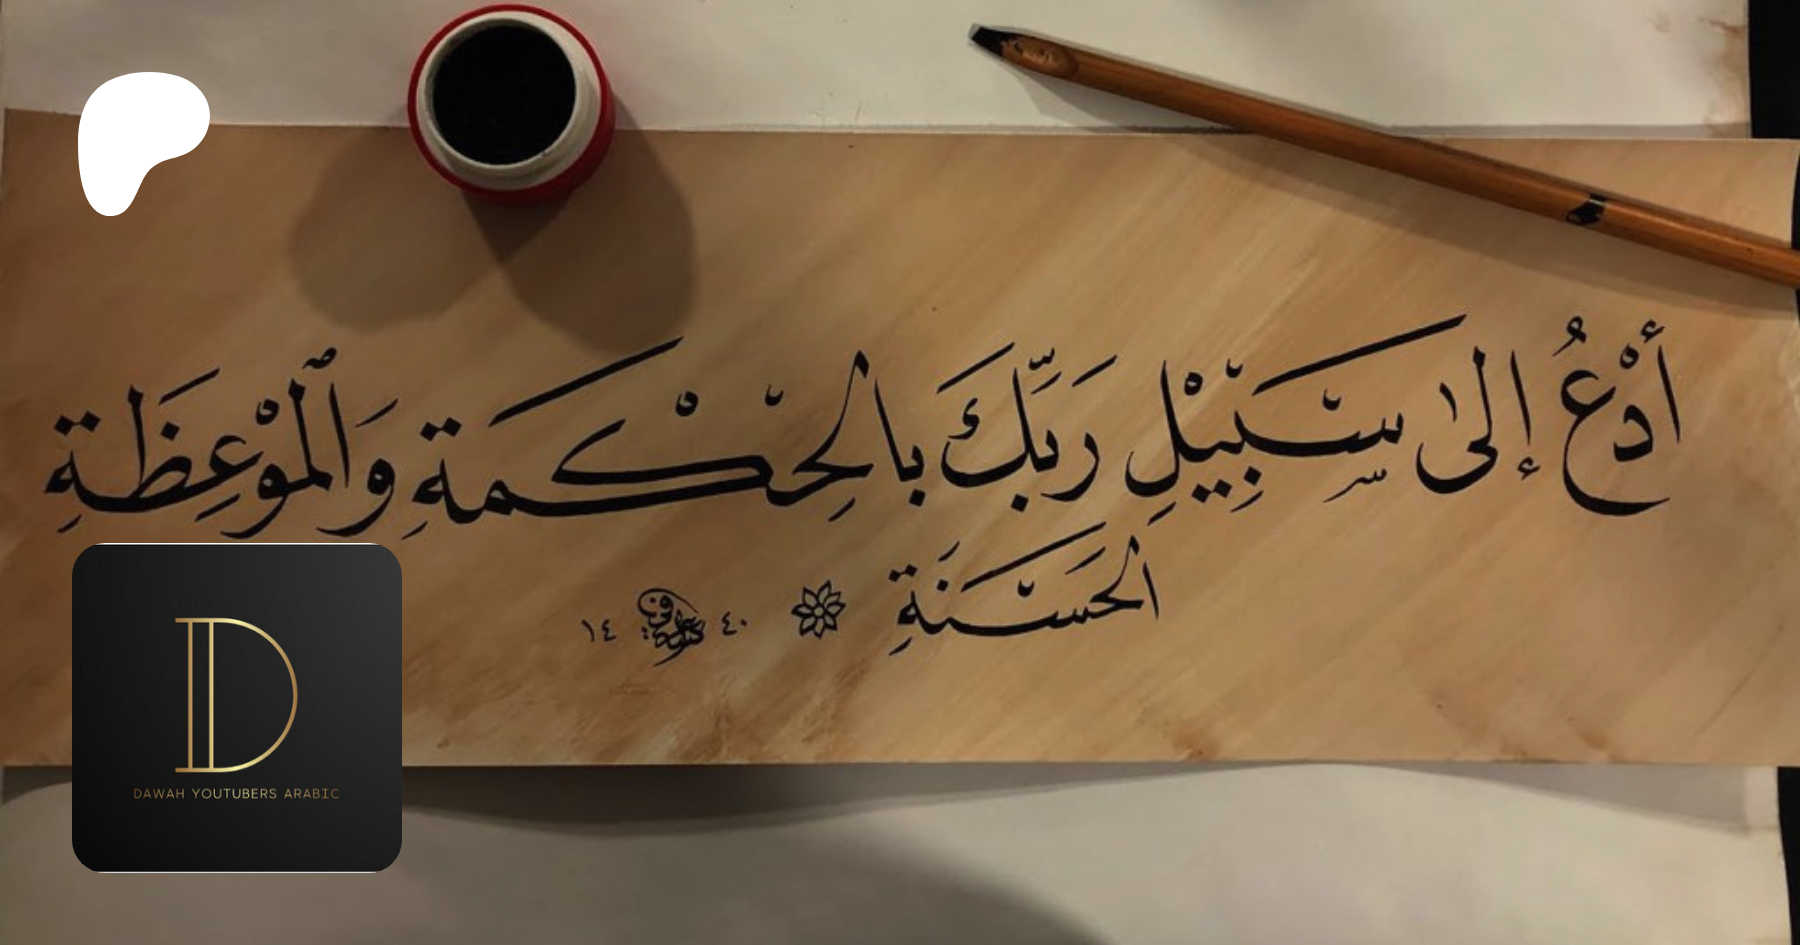 أُدْعُ إلى سَبِيْلِ رَبِّكَ بالحِكْمَةِ وَٱلمَوْعِظَةِ
الحَسَنَةِ
١٤ ٤٠
DAWAH YOUTUBERS ARABIC